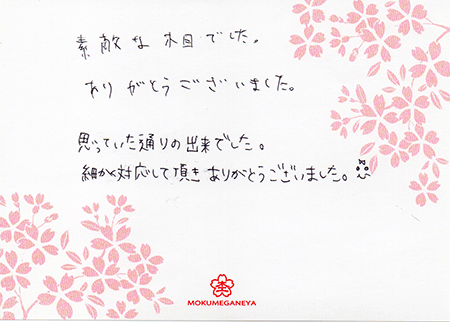 素敵な木目でした。
ありがとうございました。
思っていた通りの出来でした。
細かく対応して頂きありがとうございました。
MOKUMEGANEYA